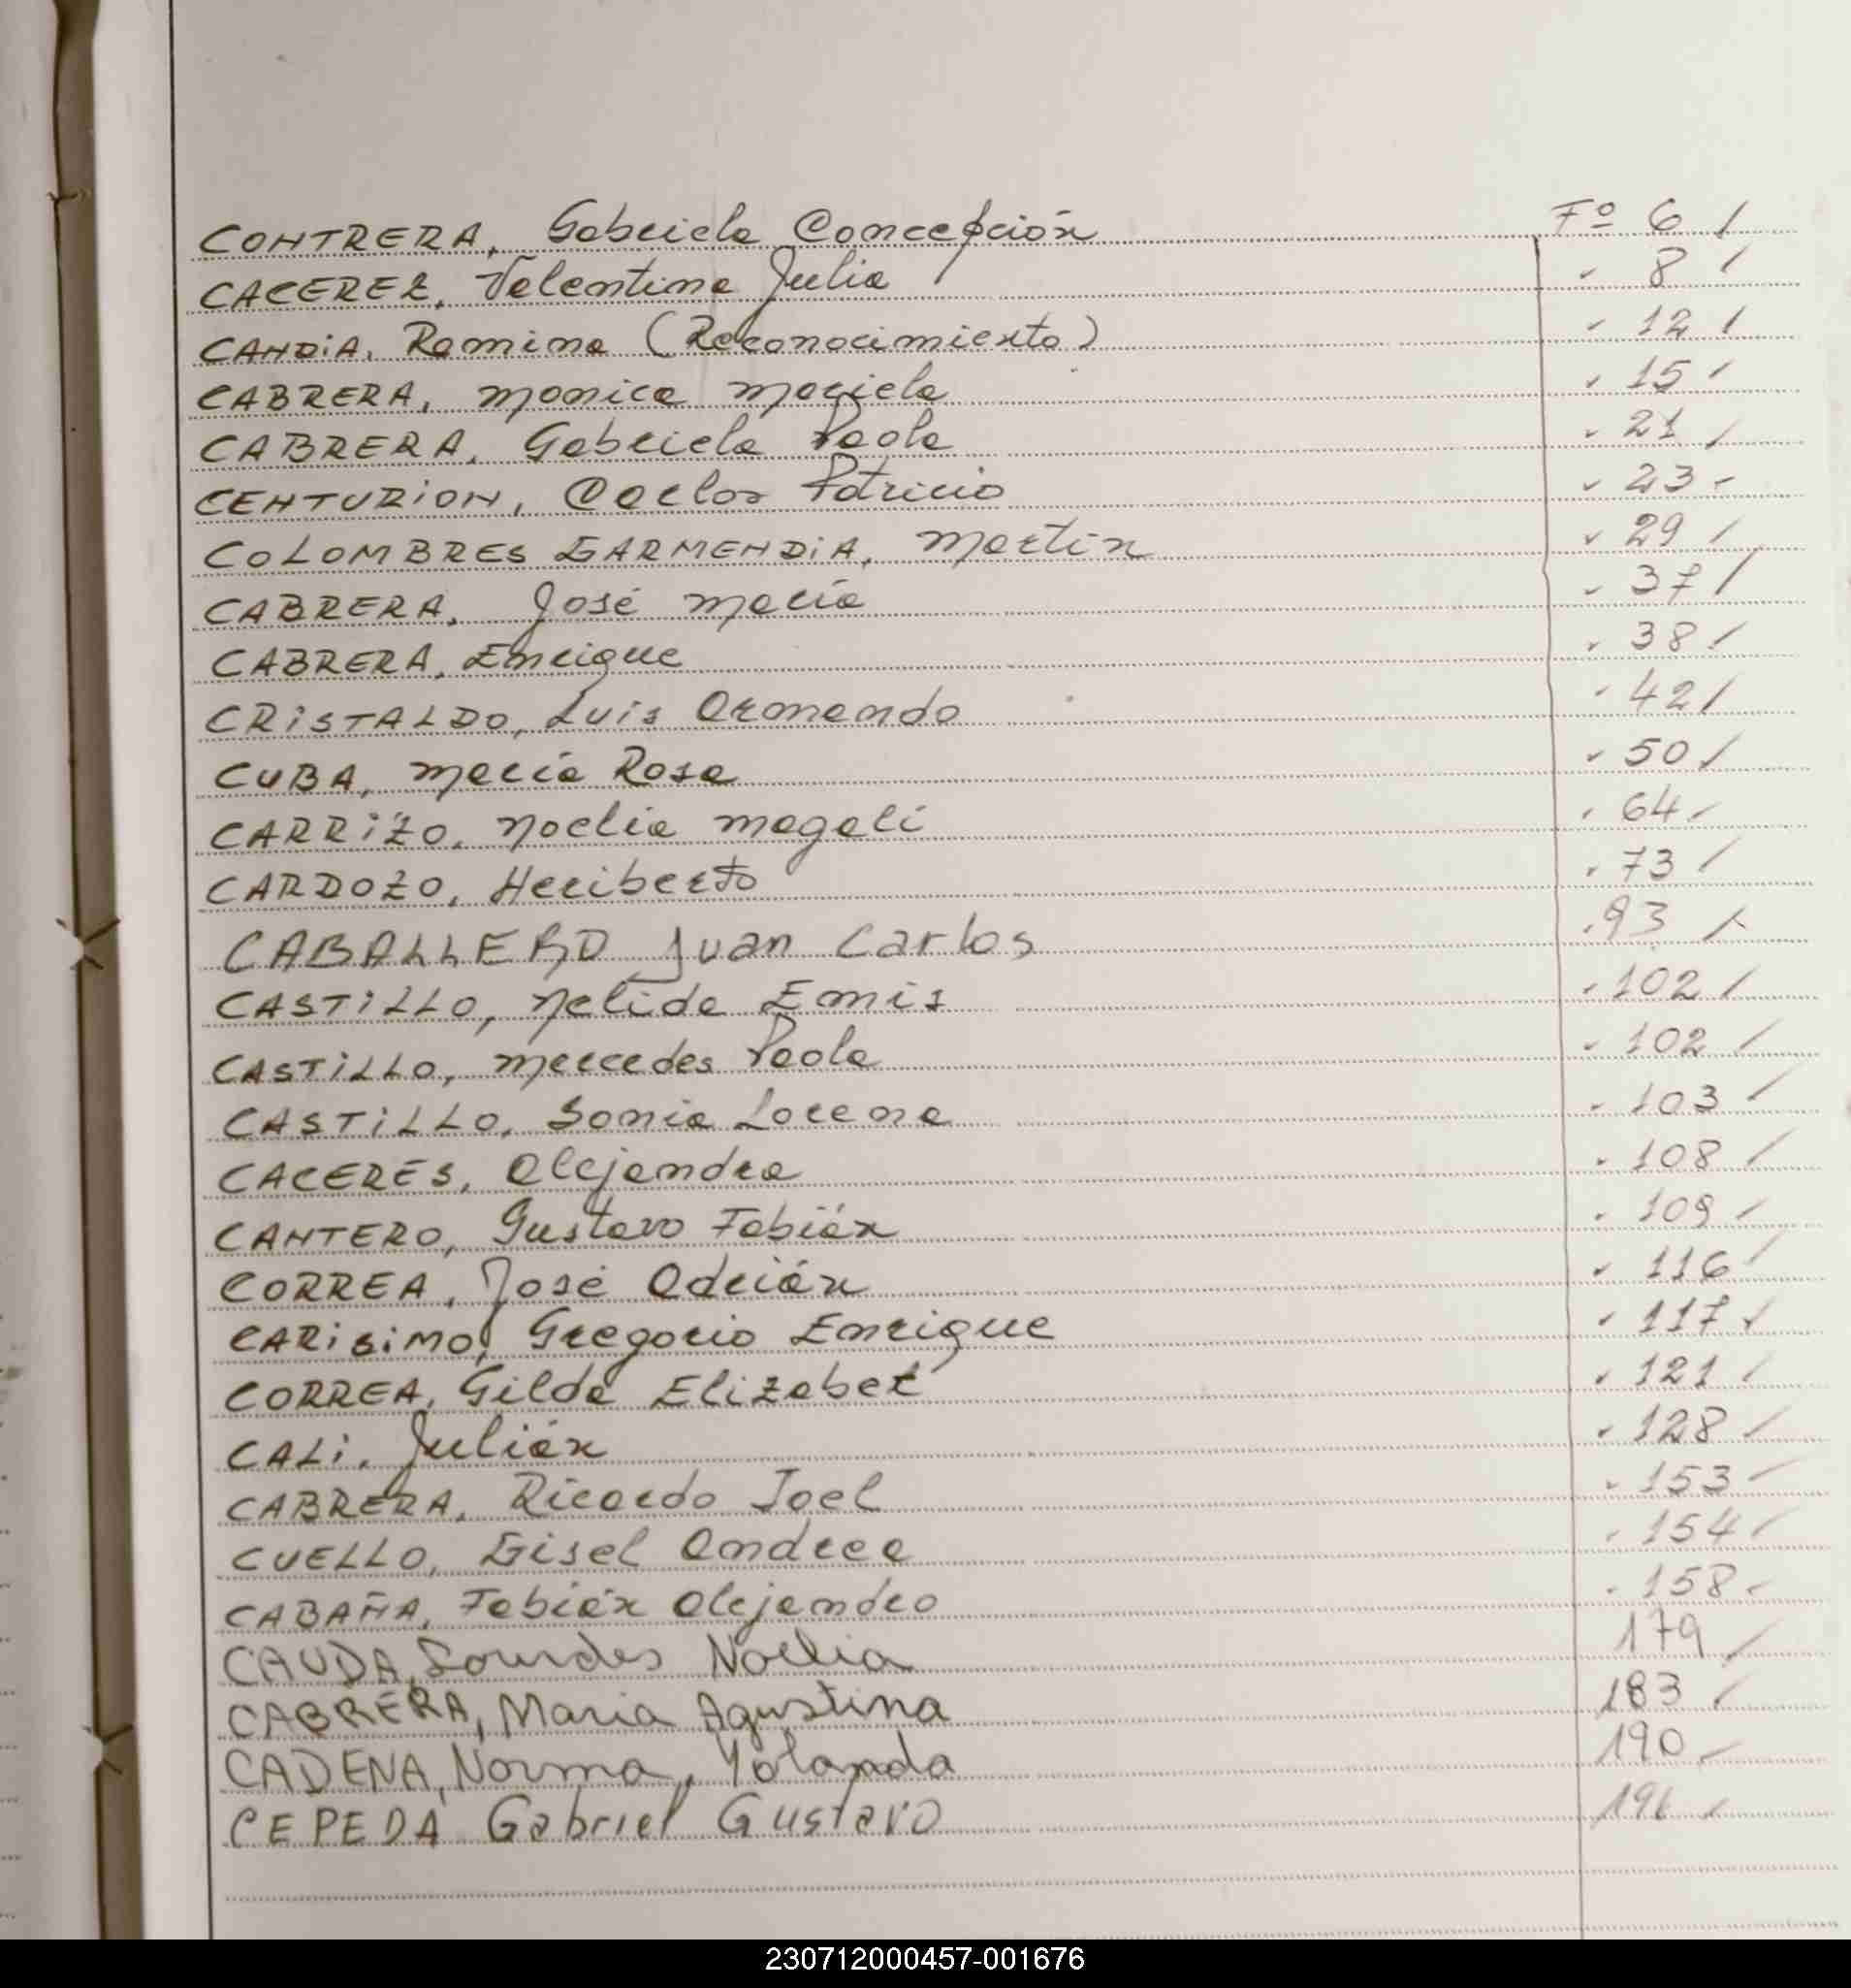 CONTRERA, Gabriela Concepción Fº 6 /
CACEREZ, Valentina Julia " 8 /
CANDiA, Romina (Reconocimiento) " 12 /
CABRERA, Monica Mariela " 15 /
CABRERA, Gabriela Paola " 21 /
CENTURiON, Carlos Patricio " 23 /
COLOMBRES GARMENDiA, Martin " 29 /
CABRERA, José María " 37 /
CABRERA, Enrique " 38 /
CRiSTALDO, Luis Armando " 42 /
CUBA, María Rosa " 50 /
CARRiZO, Noelia Magalí " 64 /
CARDOZO, Heriberto " 73 /
CABALLERO Juan Carlos " 93 /
CASTiLLO, Nelida Emis " 102 /
CASTiLLO, Mercedes Paola " 102 /
CASTiLLO, Sonia Lorena " 103 /
CACERES, Alejandra " 108 /
CANTERO, Gustavo Fabián " 109 /
CORREA, José Adrián " 116 /
CARiSiMO, Gregorio Enrique " 117 /
CORREA, Gilda Elizabet " 121 /
CALi, Julián " 128 /
CABRERA, Ricardo Joel " 153 /
CUELLO, Gisel Andrea " 154 /
CABAÑA, Fabián Alejandro " 158 /
CAUDA, Lourdes Noelia 179 /
CABRERA, Maria Agustina 183 /
CADENA, Norma, Yolanda 190 /
CEPEDA Gabriel Gustavo 196 /
230712000457-001676